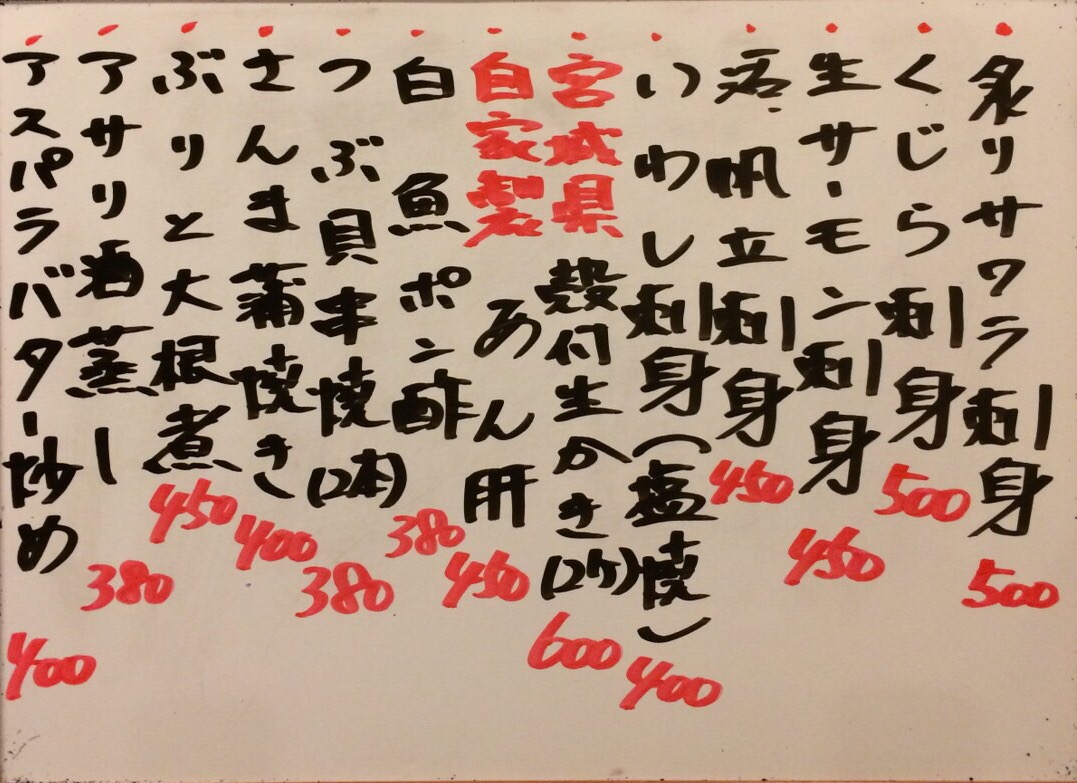 炙りサワラ刺身 500
くじら刺身 500
生サーモン刺身 450
活帆立刺身 450
いわし刺身(塩焼) 400
宮城県殻付生かき(2ケ) 600
自家製あん肝 450
白魚ポン酢 380
つぶ貝串焼(2本) 380
さんま蒲焼き 400
ぶりと大根煮 450
アサリ酒蒸し 380
アスパラバター炒め 400